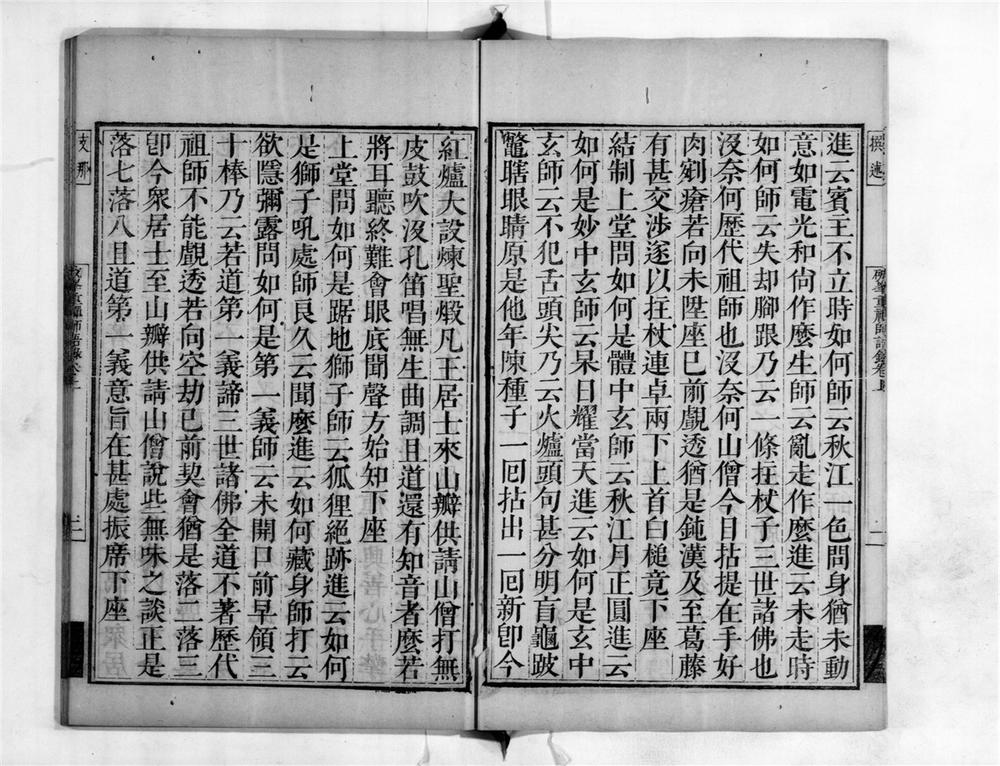 撰述
進云賓王不立時如何師云秋江一色問身猶未動
意如電光和尚作麼生師云亂走作麼進云未走時
如何師云失却腳跟乃云一條拄杖子三世諸佛也
沒奈何歷代祖師也沒奈何山僧今日拈提在手好
肉剜瘡若向未陞座已前覷透猶是鈍漢及至葛藤
有甚交涉遂以拄杖連卓兩下上首白槌竟下座
結制上堂問如何是體中玄師云秋江月正圓進云
如何是妙中玄師云杲日耀當天進云如何是玄中
玄師云不犯舌頭尖乃云火爐頭句甚分明盲龜跛
鼈瞎眼睛原是他年陳種子一囘拈出一囘新卽今
二
紅爐大設煉聖煅凡王居士來山瓣供請山僧打無
皮鼓吹沒孔笛唱無生曲調且道還有知音者麼若
將耳聽終難會眼底聞聲方始知下座
上堂問如何是踞地獅子師云狐狸絕跡進云如何
是獅子吼處師良久云聞麼進云如何藏身師打云
欲隱彌露問如何是第一義師云未開口前早領三
十棒乃云若道第一義諦三世諸佛全道不著歷代
祖師不能覷透若向空劫已前契會猶是落二落三
卽今衆居士至山瓣供請山僧說些無味之談正是
落七落八且道第一義意旨在甚處振席下座
支那